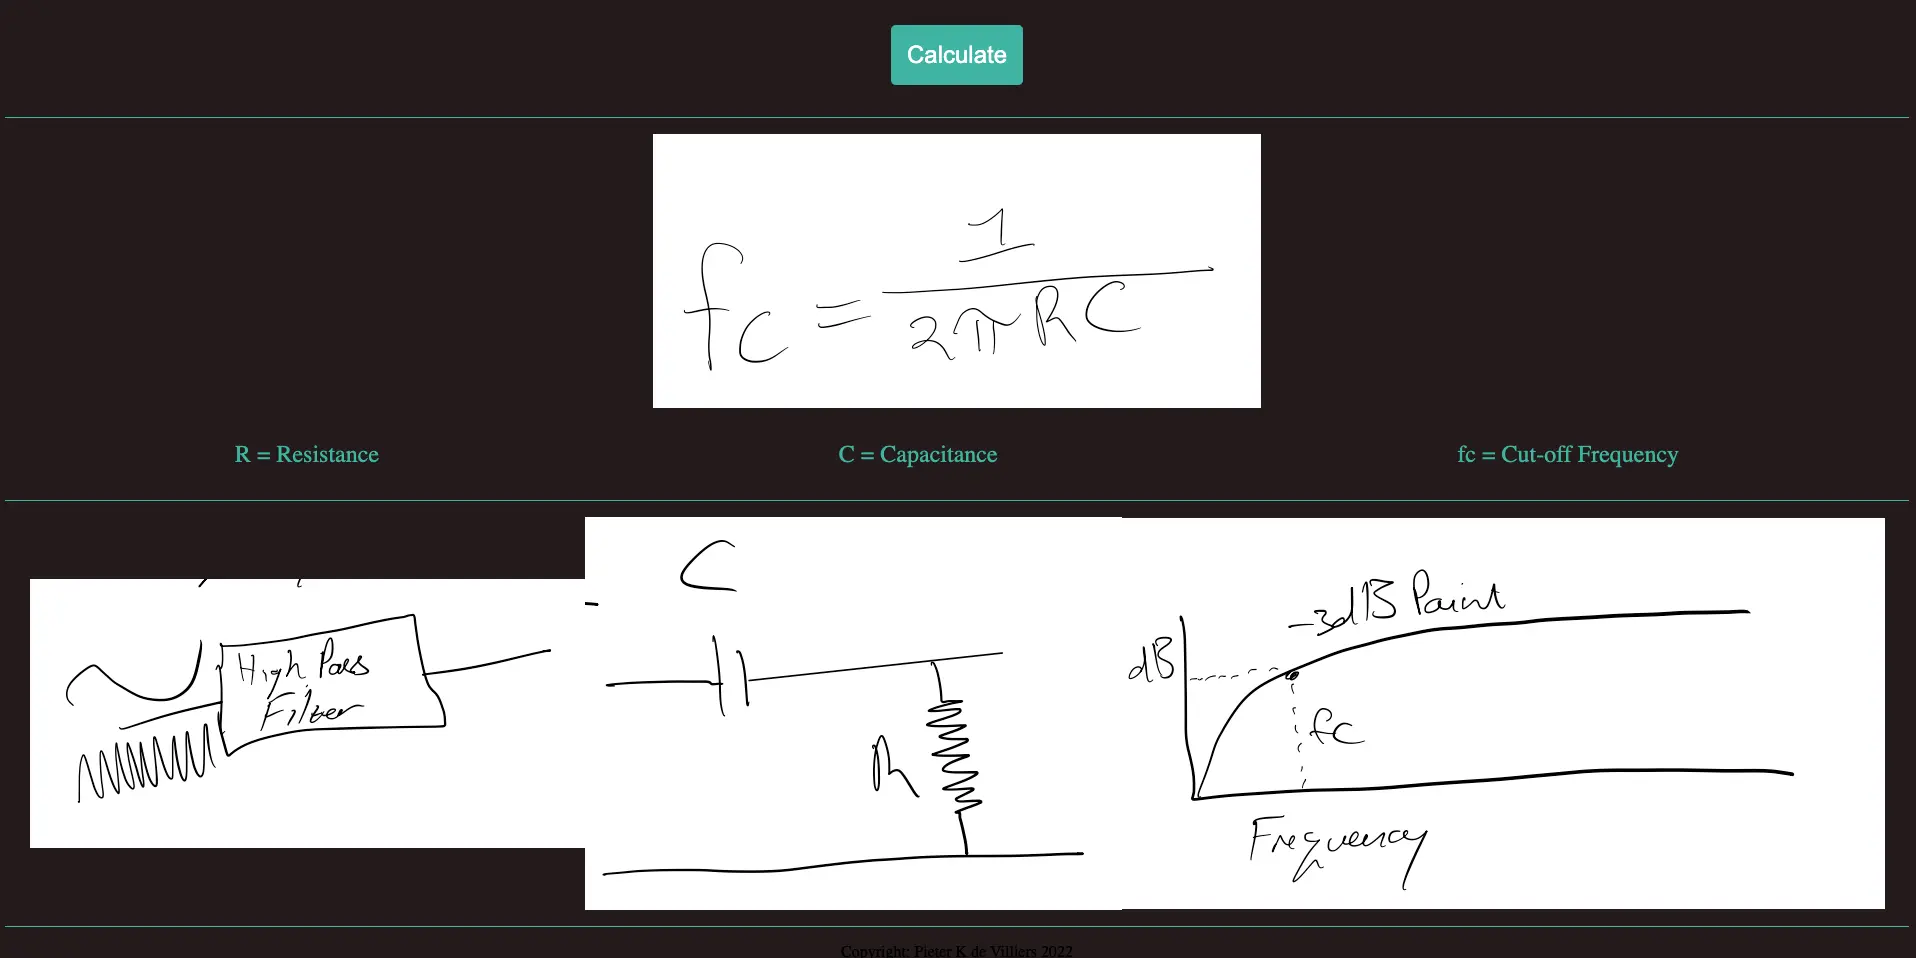 Calculate
fc = 1
2πRC
R = Resistance
C = Capacitance
fc = Cut-off Frequency
High Pass
Filter
C
R
-3dB Point
dB
fc
Frequency
Copyright: Pieter K de Villiers 2022